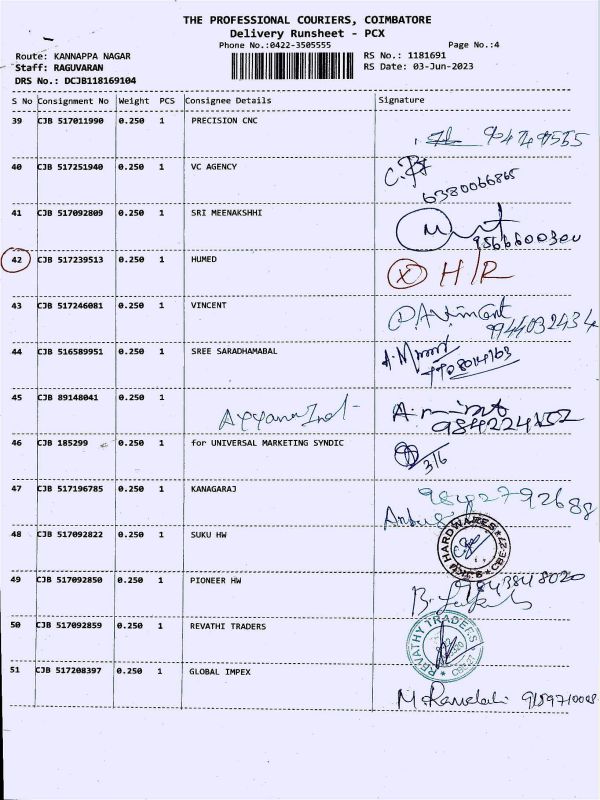 THE PROFESSIONAL COURIERS, COIMBATORE
Delivery Runsheet - PCX
Phone No.:0422-3505555 Page No.:4
Route: KANNAPPA NAGAR RS No.: 1181691
Staff: RAGUVARAN RS Date: 03-Jun-2023
DRS No.: DCJB118169104
S No Consignment No Weight PCS Consignee Details Signature
39 CJB 517011990 0.250 1 PRECISION CNC
40 CJB 517251940 0.250 1 VC AGENCY
6380066865
41 CJB 517092809 0.250 1 SRI MEENAKSHHI
9566600300
42 CJB 517239513 0.250 1 HUMED
X H/R
43 CJB 517246081 0.250 1 VINCENT
9944032434
44 CJB 516589951 0.250 1 SREE SARADHAMABAL
45 CJB 89148041 0.250 1
46 CJB 185299 0.250 1 for UNIVERSAL MARKETING SYNDIC
3/6
47 CJB 517196785 0.250 1 KANAGARAJ
48 CJB 517092822 0.250 1 SUKU HW
49 CJB 517092850 0.250 1 PIONEER HW
9843848020
50 CJB 517092859 0.250 1 REVATHI TRADERS
REVATHY TRADERS
51 CJB 517208397 0.250 1 GLOBAL IMPEX